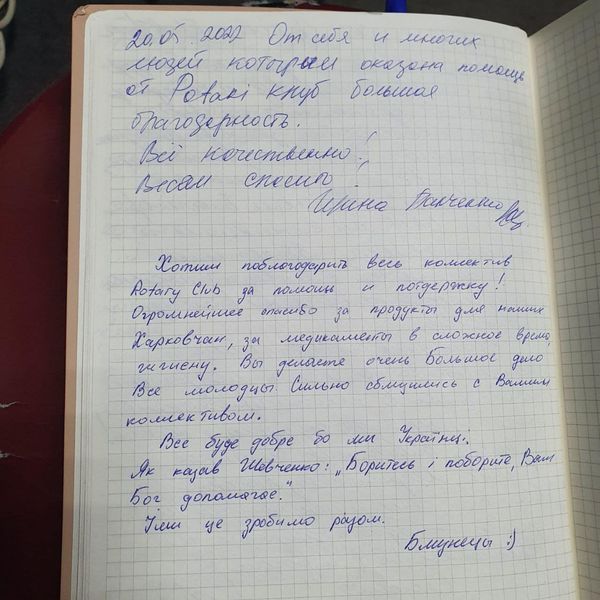 20.05.2022 От себя и многих
людей которым оказана помощь
от Ротакі клуб большая
благодарность.
Всё качественно!
Всем спасибо!
Ирина
Хотим поблогодарить весь коллектив
Rotary Club за помощь и потдержку!
Огромнейшее спасибо за продукты для наших
Харковчан, за медикаменты в сложное время,
гигиену. Вы делаете очень большое дело
Все молодцы. Сильно сблизились с Вашим
коллективом.
Все буде добре бо ми Українці.
Як казав Шевченко: „Боритесь і поборите, Вам
Бог допомагає."
І ми це зробимо разом.
:)